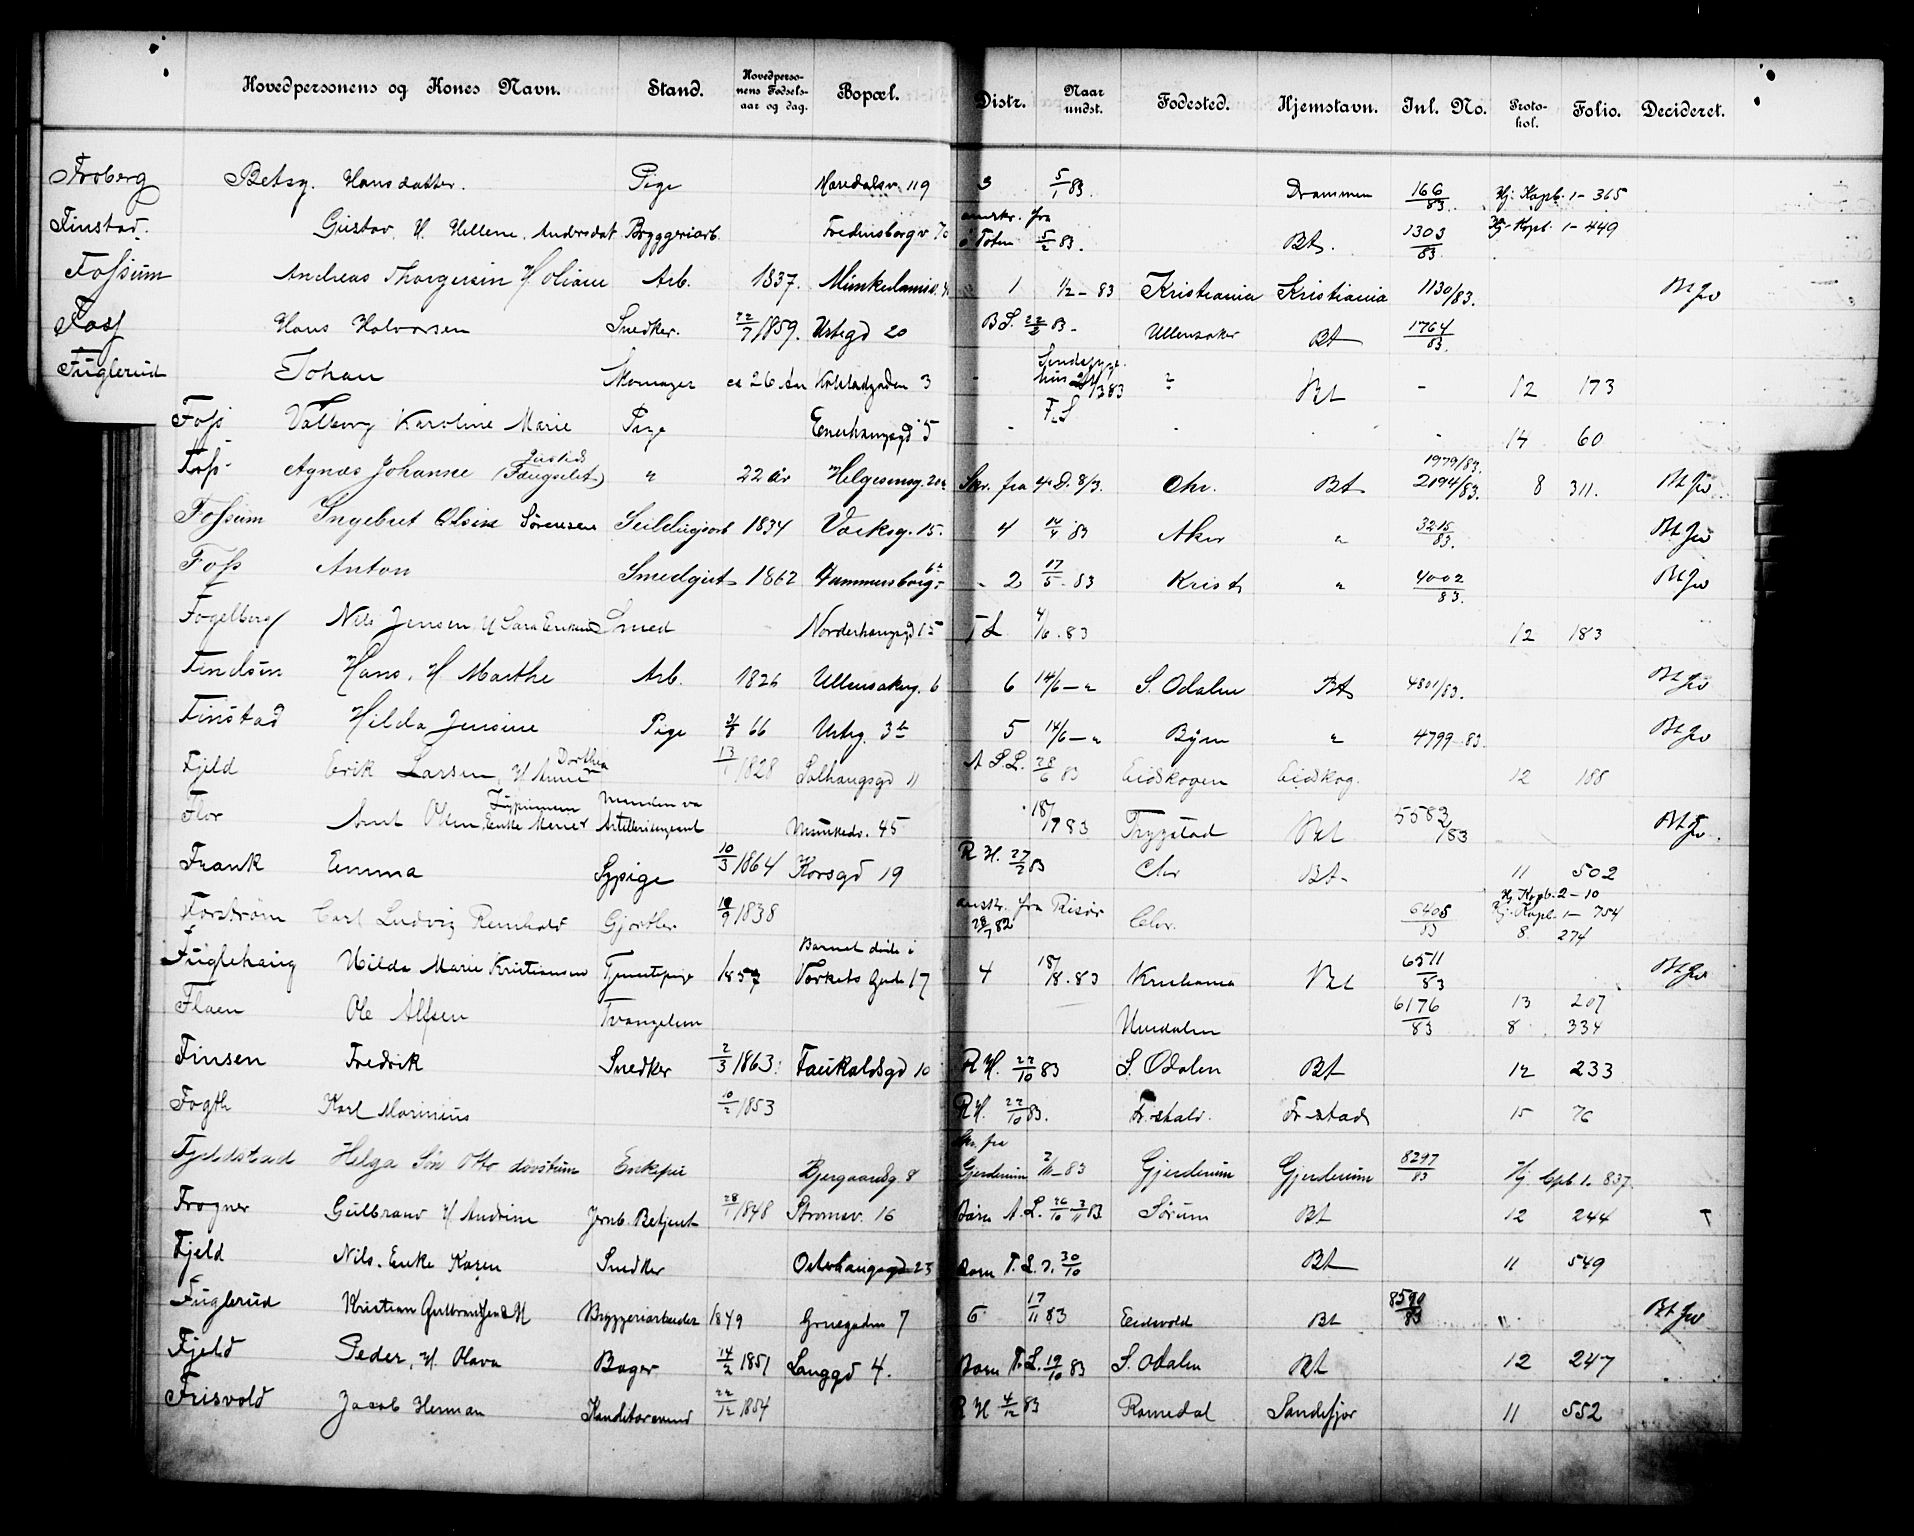 Hovedpersonens og Kones Navn. Stand. Hovedpersonens Fødselsaar og dag. Bopæl. Distr. Naar undst. Fødested. Hjemstavn. Inl. No. Protokol. Folio. Decideret.
Froberg Betsy Hansdatter. Pige Maridalsv. 119 3 5/1 83. Drammen 166/83. Hj. Kopb. 1 - 365
Finstad. Gustav, H. Hellene Andersdat Bryggeriarb. 5/2 83. Bt. 1303/83 Hj. Kopb. 1 - 449
Fossum Andreas Thorgersen H Oliane Arb. 1837. 1 1/2 - 83 Kristiania Kristiania 1130/83. Bt Jw
Foss Hans Halvorsen Snedker. 22/7 1859. Urtegd 20 B S. 22/2 83 - Ullensaker Bt 1764/83.
Fuglerud Johan Skomager ca 26 Aar 3 83 Bt - 12 173
Foss Valborg Karoline Marie Pige Enerhaugsgd 5 F.S 14 60
Foss Agnes Johanne " 22 år Helgesensg. Skr. fra 4. D. 8/3. Chr. Bt 1979/83. 2194/83. 8 311. Bt Jw
Fossum Ingebret Olsen Sørensen 1834 Vaeksg. 15. 4 14/4 83 Aker " 3215/83. Bt Jw
Foss Anton Smedgut 1862 Hammersborg - 2 17/5 - 83 Krist " 4002/83. Bt Jw
Fogelberg Nils Jensen, H Sara Smed Norderhaugsgd 15 T L 4/6 - 83 12 183
Findsen Hans, H Marthe Arb. 1826 Ullensakerg. 6 6 14/6 - " S. Odalen Bt 4801/83. Bt Jw
Finstad Hilda Jensine Pige 66 Urteg. 3 5 14/6 - " Byen " 4799 - 83. Bt Jw
Fjeld Erik Larsen, H Anne Dorthea 13/1 1828 Solhaugsgd 11 A S.L. 28/6 83 Eidskogen Eidskog. 12 188
Flor Olsen, Enke Manden va Munkedv. 45 18/7 83 Trygstad Bt 5582/83 Bt Jw
Frank Emma Sypige 10/3 1864 Korsgd 19 R H. 27/2 83 Chr Bt - 11 502
Forstrøm Carl Ludvig Reinhold Gjørtler 1838 fra Risør 28/7 82 Chr. 6405/83 Hj. Kopb. 2 - 10
Hj. Kopb. 1 - 754
8 274
Fuglehaug Hilda Marie Kristiansen Tjenestepige 1857 Barnet døde i 17 4 18/8 - 83 Kristiania Bt 6511/83 Bt Jw
Flaen Ole Alfsen Hurdalen 6176/83 13 207
8 334
Finsen Fredrik Snedker 2/3 1863. 10 R H. 22/10 83 S. Odalen Bt 12 233
Fogth Karl Marinius 10/2 1853 R H. 22/10 83. Fr-stad 15 76
Fjeldstad Helga Søn Otto Enkepie Bjergaardsg. 8 Skr. fra Gjerdrum - 83 Gjerdrum Gjerdrum 8297/83 Hj. Cpb. 1 - 837.
Frogner Gulbrand H Andrine Jernb. Betjent 28/1 1848 Strømsv. 16 Barn A.L. 26/10 - 2/11 83 Sørum Bt 12 244
Fjeld Nils. Enke Karen Snedker Osterhaugsgd 23 Barn T.L. 30/10 Bt 11 549
Fuglerud Kristian Gulbrandsen & H Bryggeriarbeider 1849 Grønegaden 7 6 17/11 83 Eidsvold Bt 83 " Bt Jw
Fjeld Peder, H. Olava Bager 14/2 1851 Langgd 4. Barn T.L. 19/10 83 S. Odalen Bt 12 247
Frisvold Jacob Herman Kanditorsvend 22/12 1854 R H 4/12 83 Romedal Sandefjor 11 552